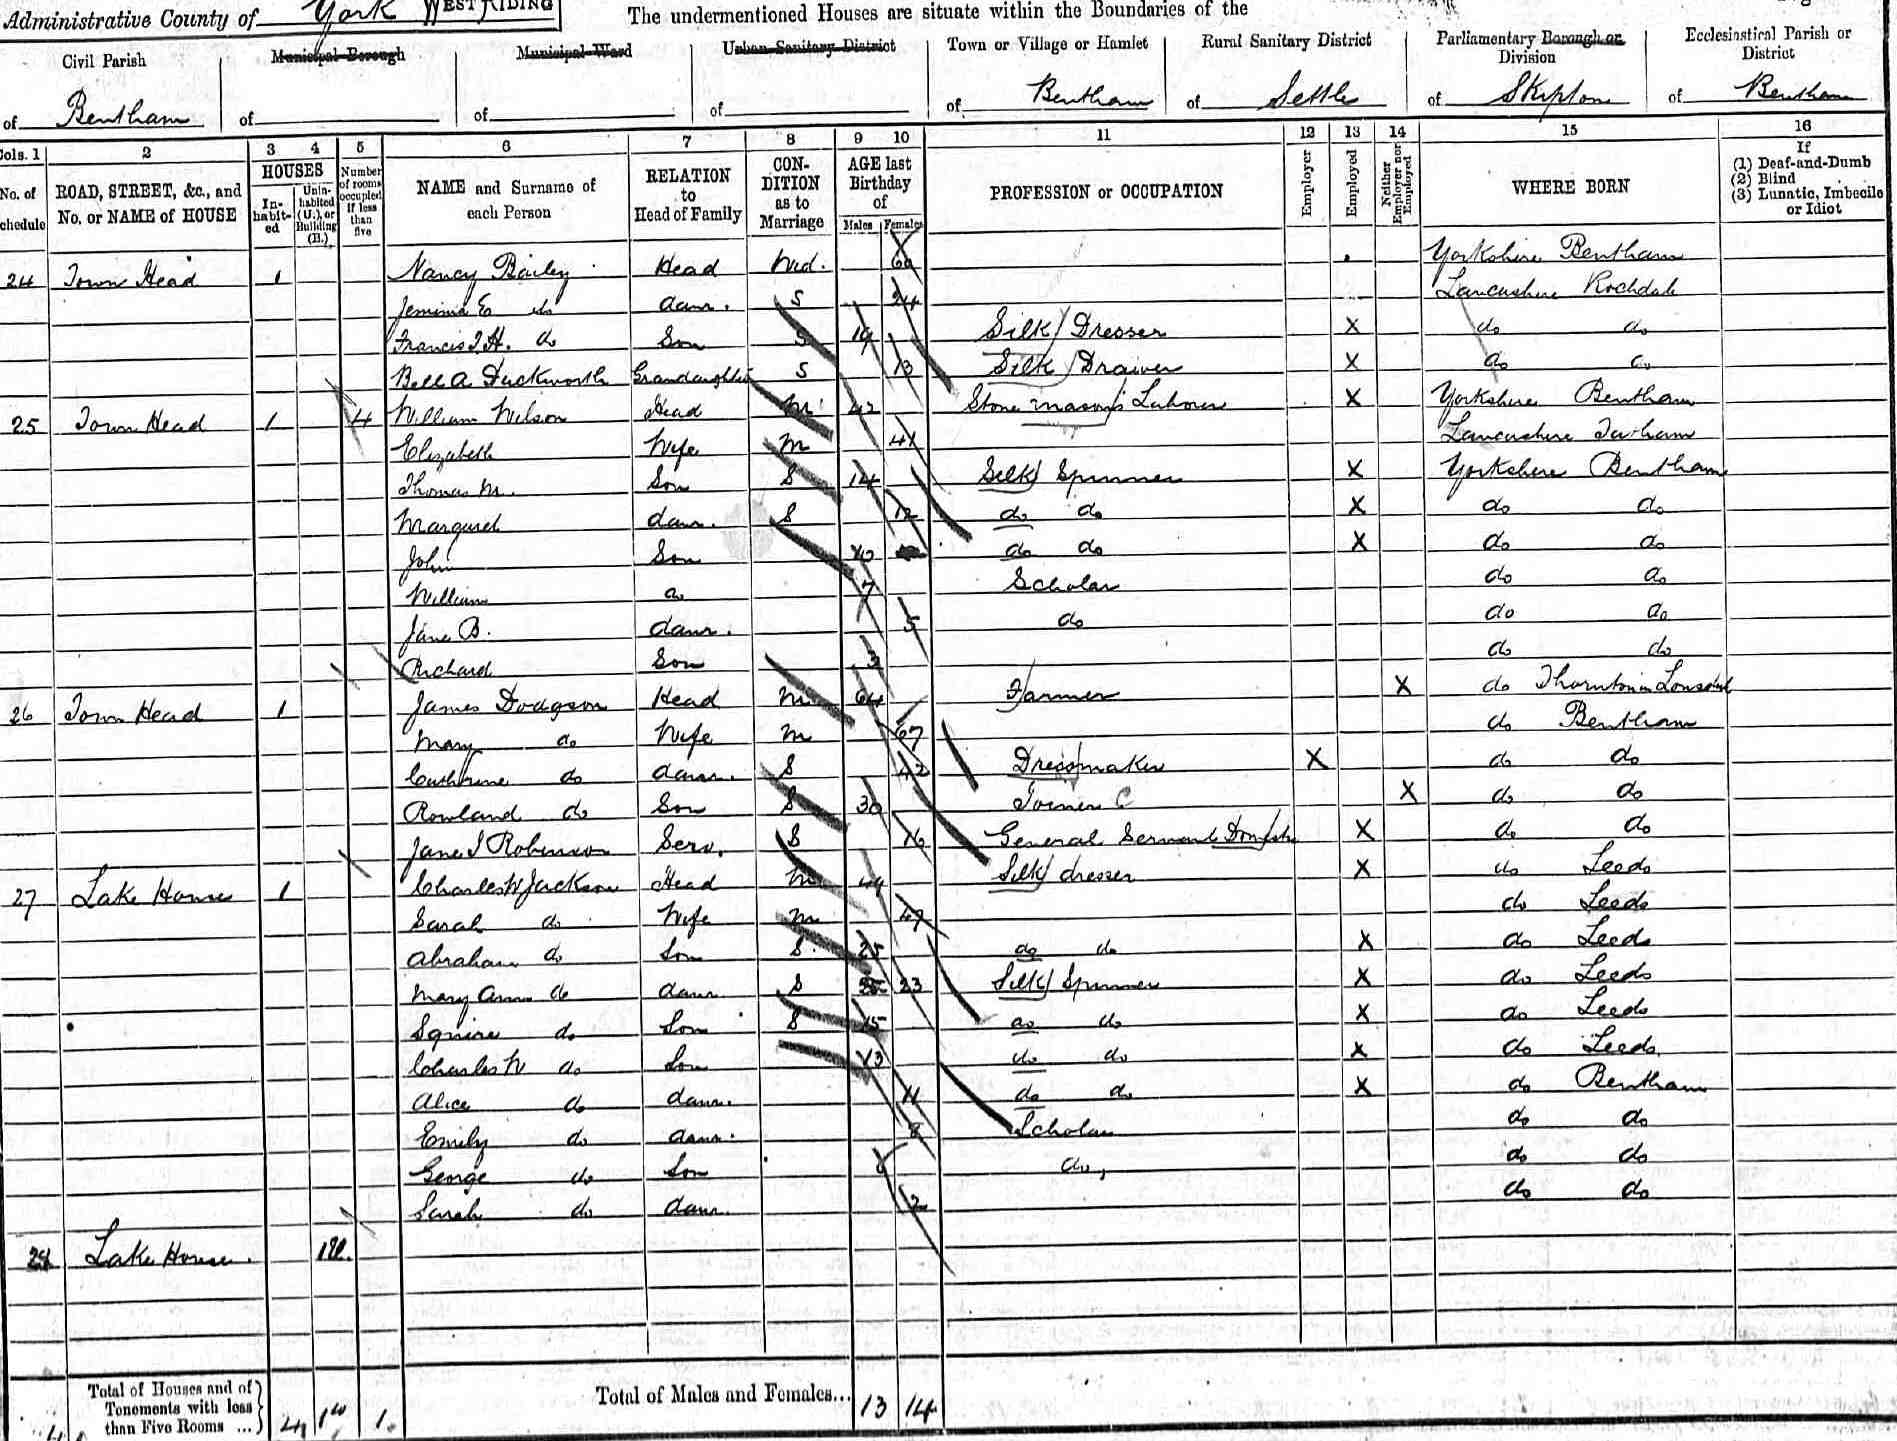 Administrative County of York WEST RIDING The undermentioned Houses are situate within the Boundaries of the
Civil Parish Municipal Borough Municipal Ward Urban Sanitary District Town or Village or Hamlet Rural Sanitary District Parliamentary Borough or Division Ecclesiastical Parish or District
of Bentham of of of of Bentham of Settle of Skipton of Bentham
Cols. 1 2 3 4 5 6 7 8 9 10 11 12 13 14 15 16
No. of Schedule ROAD, STREET, &c., and No. or NAME of HOUSE HOUSES In-habit-ed Unin-habited (U.), or Building (B.) Number of rooms occupied if less than five NAME and Surname of each Person RELATION to Head of Family CON-DITION as to Marriage AGE last Birthday of Males Females PROFESSION or OCCUPATION Employer Employed Neither Employer nor Employed WHERE BORN If (1) Deaf-and-Dumb (2) Blind (3) Lunatic, Imbecile or Idiot
24 Town Head 1 Nancy Bailey Head Wid. 60 Yorkshire Bentham
Jemima E do daur. S 24 Lancashire Rochdale
Francis J. H. do Son S 19 Silk Dresser X do do
Bell A Duckworth Grandaughter S 13 Silk Drawer X do do
25 Town Head 1 4 William Wilson Head M 42 Stone mason's Labourer X Yorkshire Bentham
Elizabeth Wife M 41 Lancashire Tatham
Thomas M. Son S 14 Silk Spinner X Yorkshire Bentham
Margaret daur. S 12 do do X do do
John Son 10 do do X do do
William do 7 Scholar do do
Jane B. daur. 5 do do do
Richard Son 3 do do
26 Town Head 1 James Dodgson Head M 64 Farmer X do Thornton in Lonsdal
Mary do Wife M 67 do Bentham
Cathrine do daur. S 42 Dressmaker X do do
Rowland do Son S 30 Joiner C X do do
Jane I Robinson Serv. S 16 General Servant Domestic X do do
27 Lake House 1 Charles W Jackson Head M 49 Silk dresser X do Leeds
Sarah do Wife M 47 do Leeds
Abraham do Son S. 25 do do X do Leeds
Mary Ann do daur S 23 Silk Spinner X do Leeds
Squire do Son S 15 do do X do Leeds
Charles W do Son 13 do do X do Leeds
Alice do daur. 11 do do X do Bentham
Emily do daur. 8 Scholar do do
George do Son 6 do, do do
Sarah do daur. 2 do do
Lake House. 1U.
Total of Houses and of Tenements with less than Five Rooms ... 4 1U 1. Total of Males and Females... 13 14